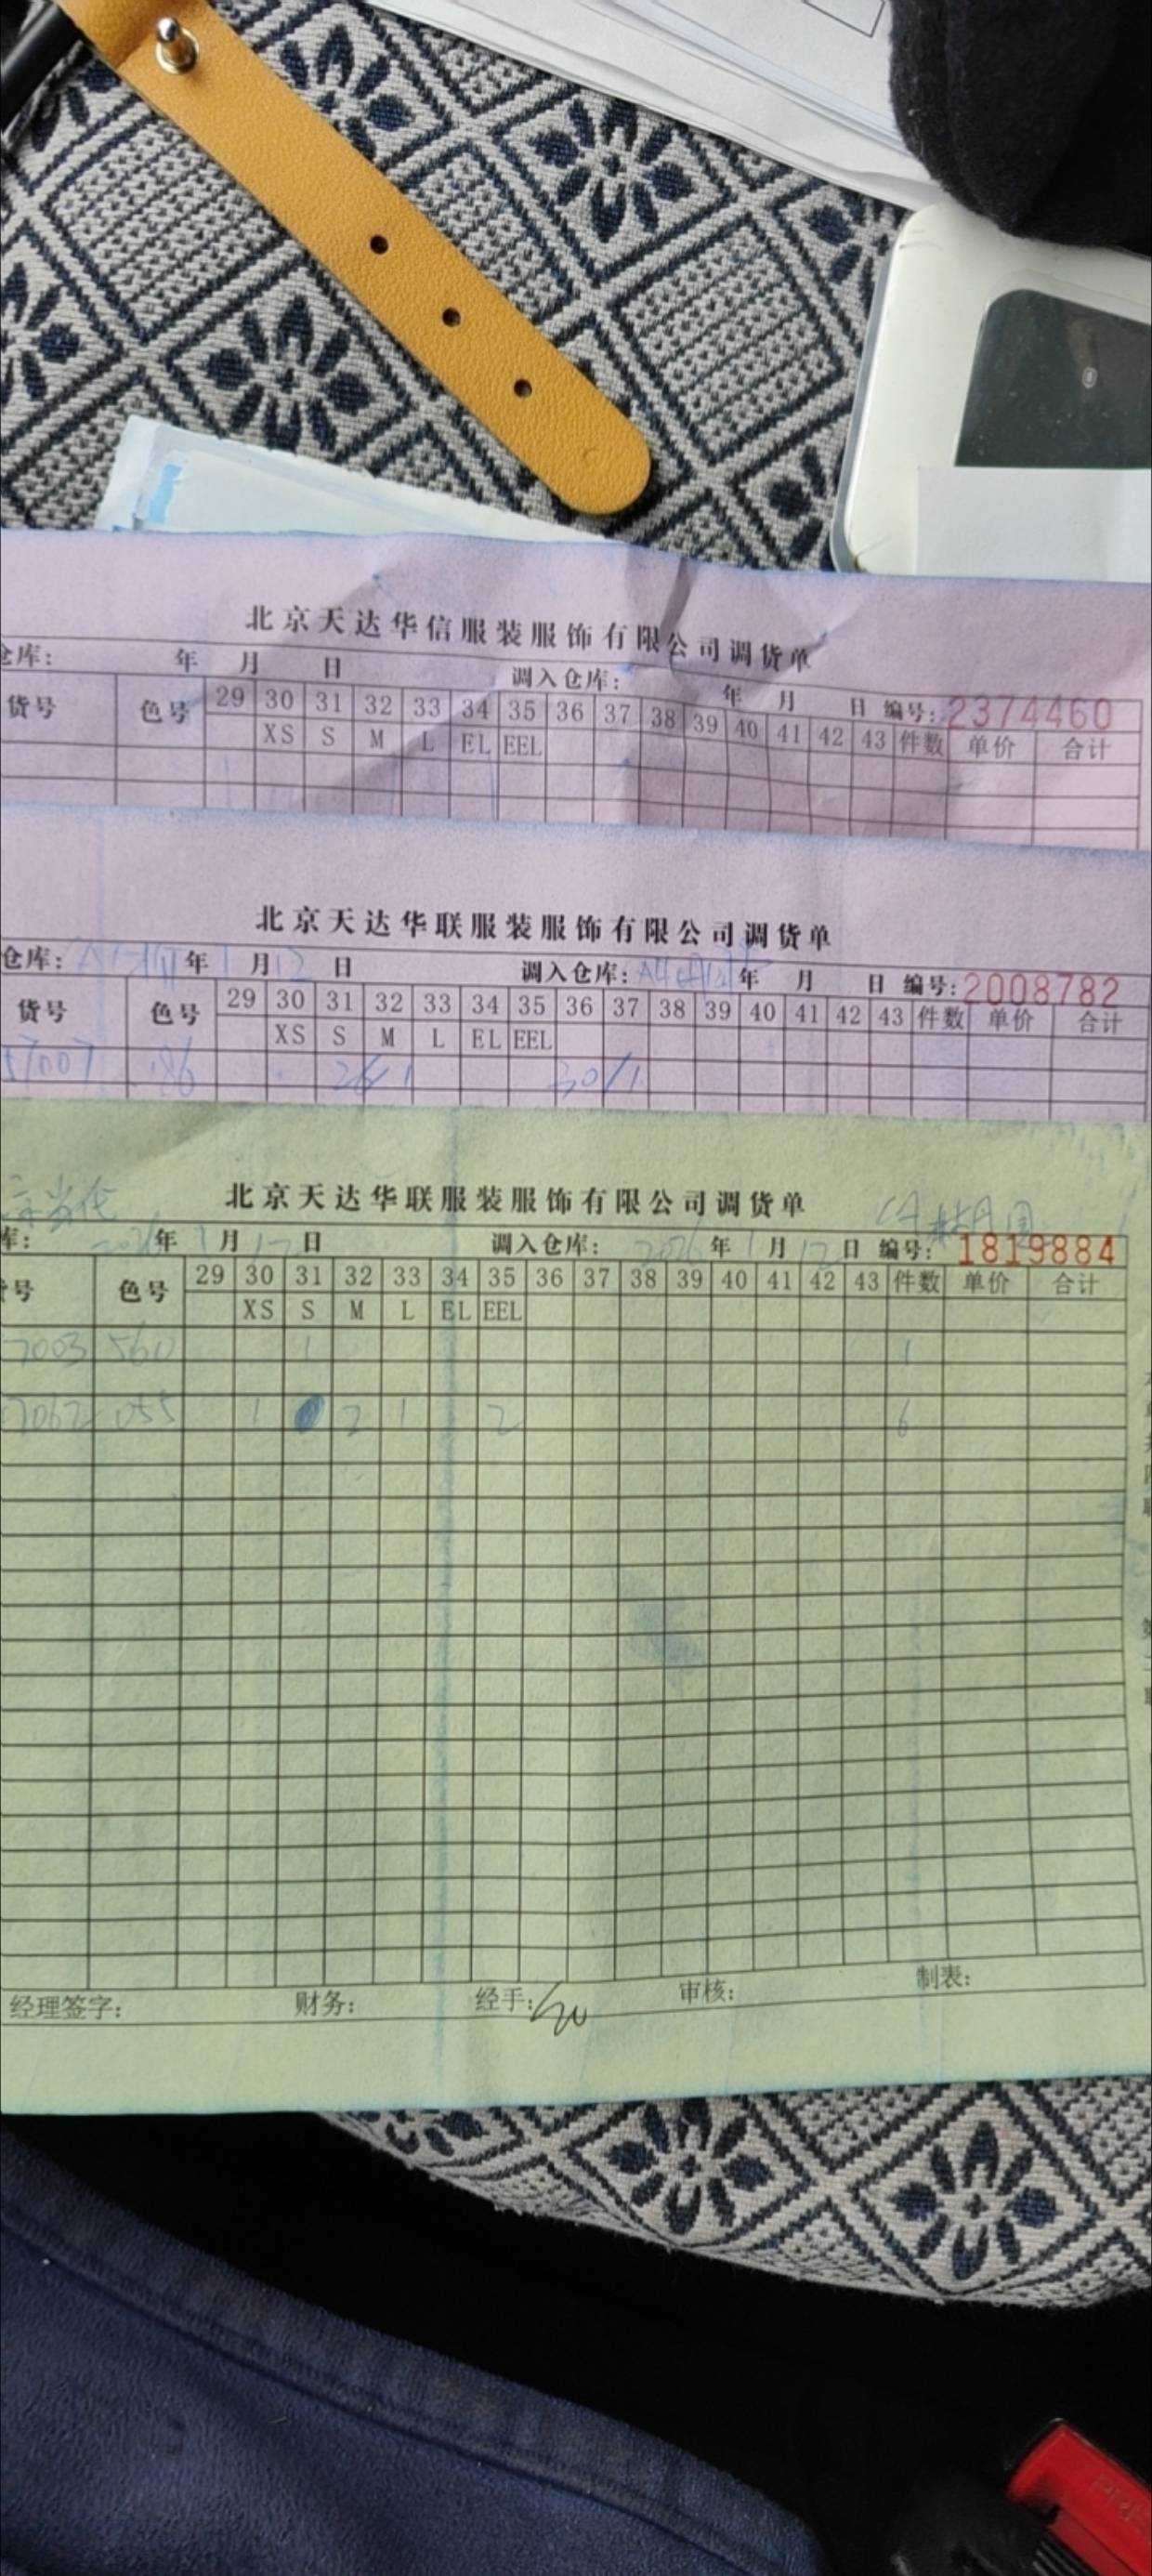 北京天达华信服装服饰有限公司调货单
仓库: 年 月 日 调入仓库: 年 月 日 编号:2374460
货号 色号 29 30 31 32 33 34 35 36 37 38 39 40 41 42 43 件数 单价 合计
XS S M L EL EEL
北京天达华联服装服饰有限公司调货单
仓库: 年 1 月 12 日 调入仓库: 年 月 日 编号:2008782
货号 色号 29 30 31 32 33 34 35 36 37 38 39 40 41 42 43 件数 单价 合计
XS S M L EL EEL
57007 30/1
北京天达华联服装服饰有限公司调货单
库: 年 1 月 12 日 调入仓库: 2026 年 1 月 12 日 编号: 1819884
号 色号 29 30 31 32 33 34 35 36 37 38 39 40 41 42 43 件数 单价 合计
XS S M L EL EEL
7003 560 1 1
7062 055 1 2 1 2 6
经理签字: 财务: 经手: 审核: 制表: